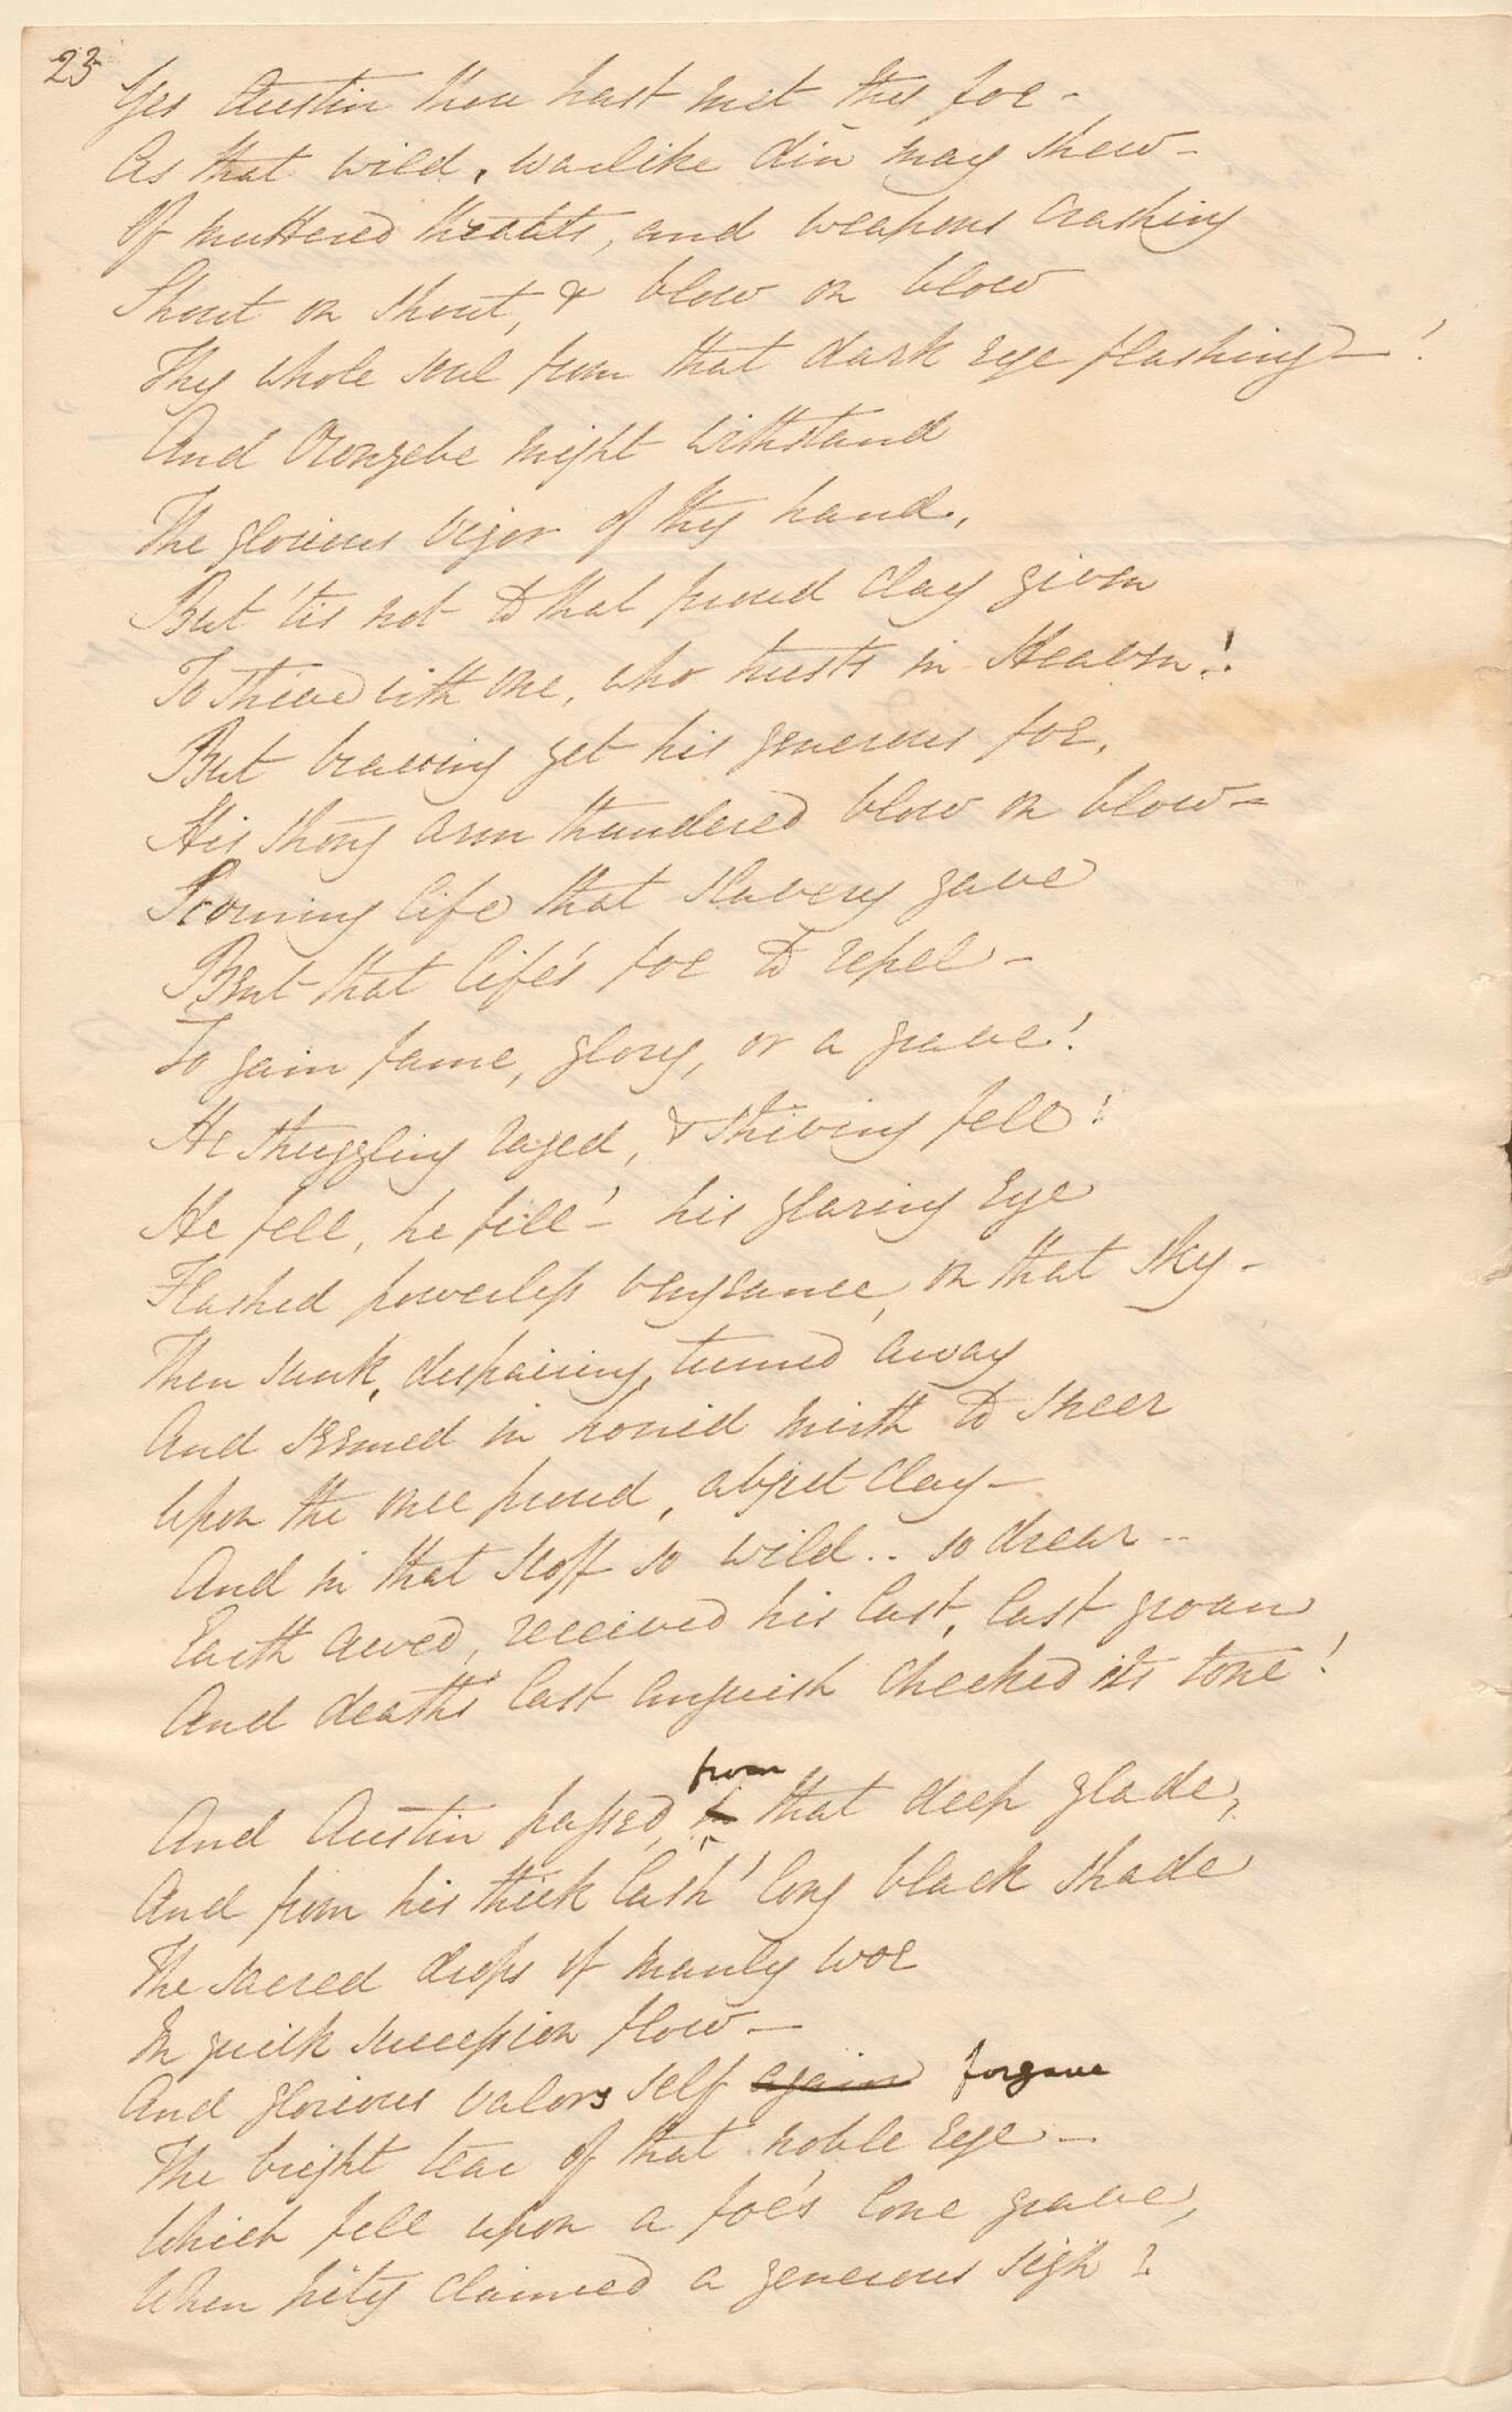 23
Yes Austin thou hast met thy foe -
As that wild, warlike din may shew -
Of muttered threats, and weapons crashing
Shout on shout, & blow on blow
Thy whole soul from that dark eye flashing - !
And Orengebe might withstand
The glorious vigor of thy hand,
But 'tis not to that proud clay given
To strive with one, who trusts in Heaven!
But braving yet his generous foe,
His strong arm thundered blow on blow -
Scorning life that slavery gave
But that life's foe to repel -
To gain fame, glory, or a grave!
He struggling raged, & striving fell!
He fell, he fell! - his glaring eye
Flashed powerless vengeance, on that sky -
Then sunk, despairing, turned away
And seemed in horrid mirth to sneer
Upon the once proud, abject clay -
And in that scoff so wild .. so drear ..
Earth awed, received his last, last groan
And death's last anguish checked its tone!
from
And Austin passed, in that deep glade,
And from his thick lash' long black shade
The sacred drops of manly woe
In quick succession flow -
And glorious valors self again forgave
The bright tear of that noble eye -
Which fell upon a foe's lone grave,
When pity claimed a generous sigh?